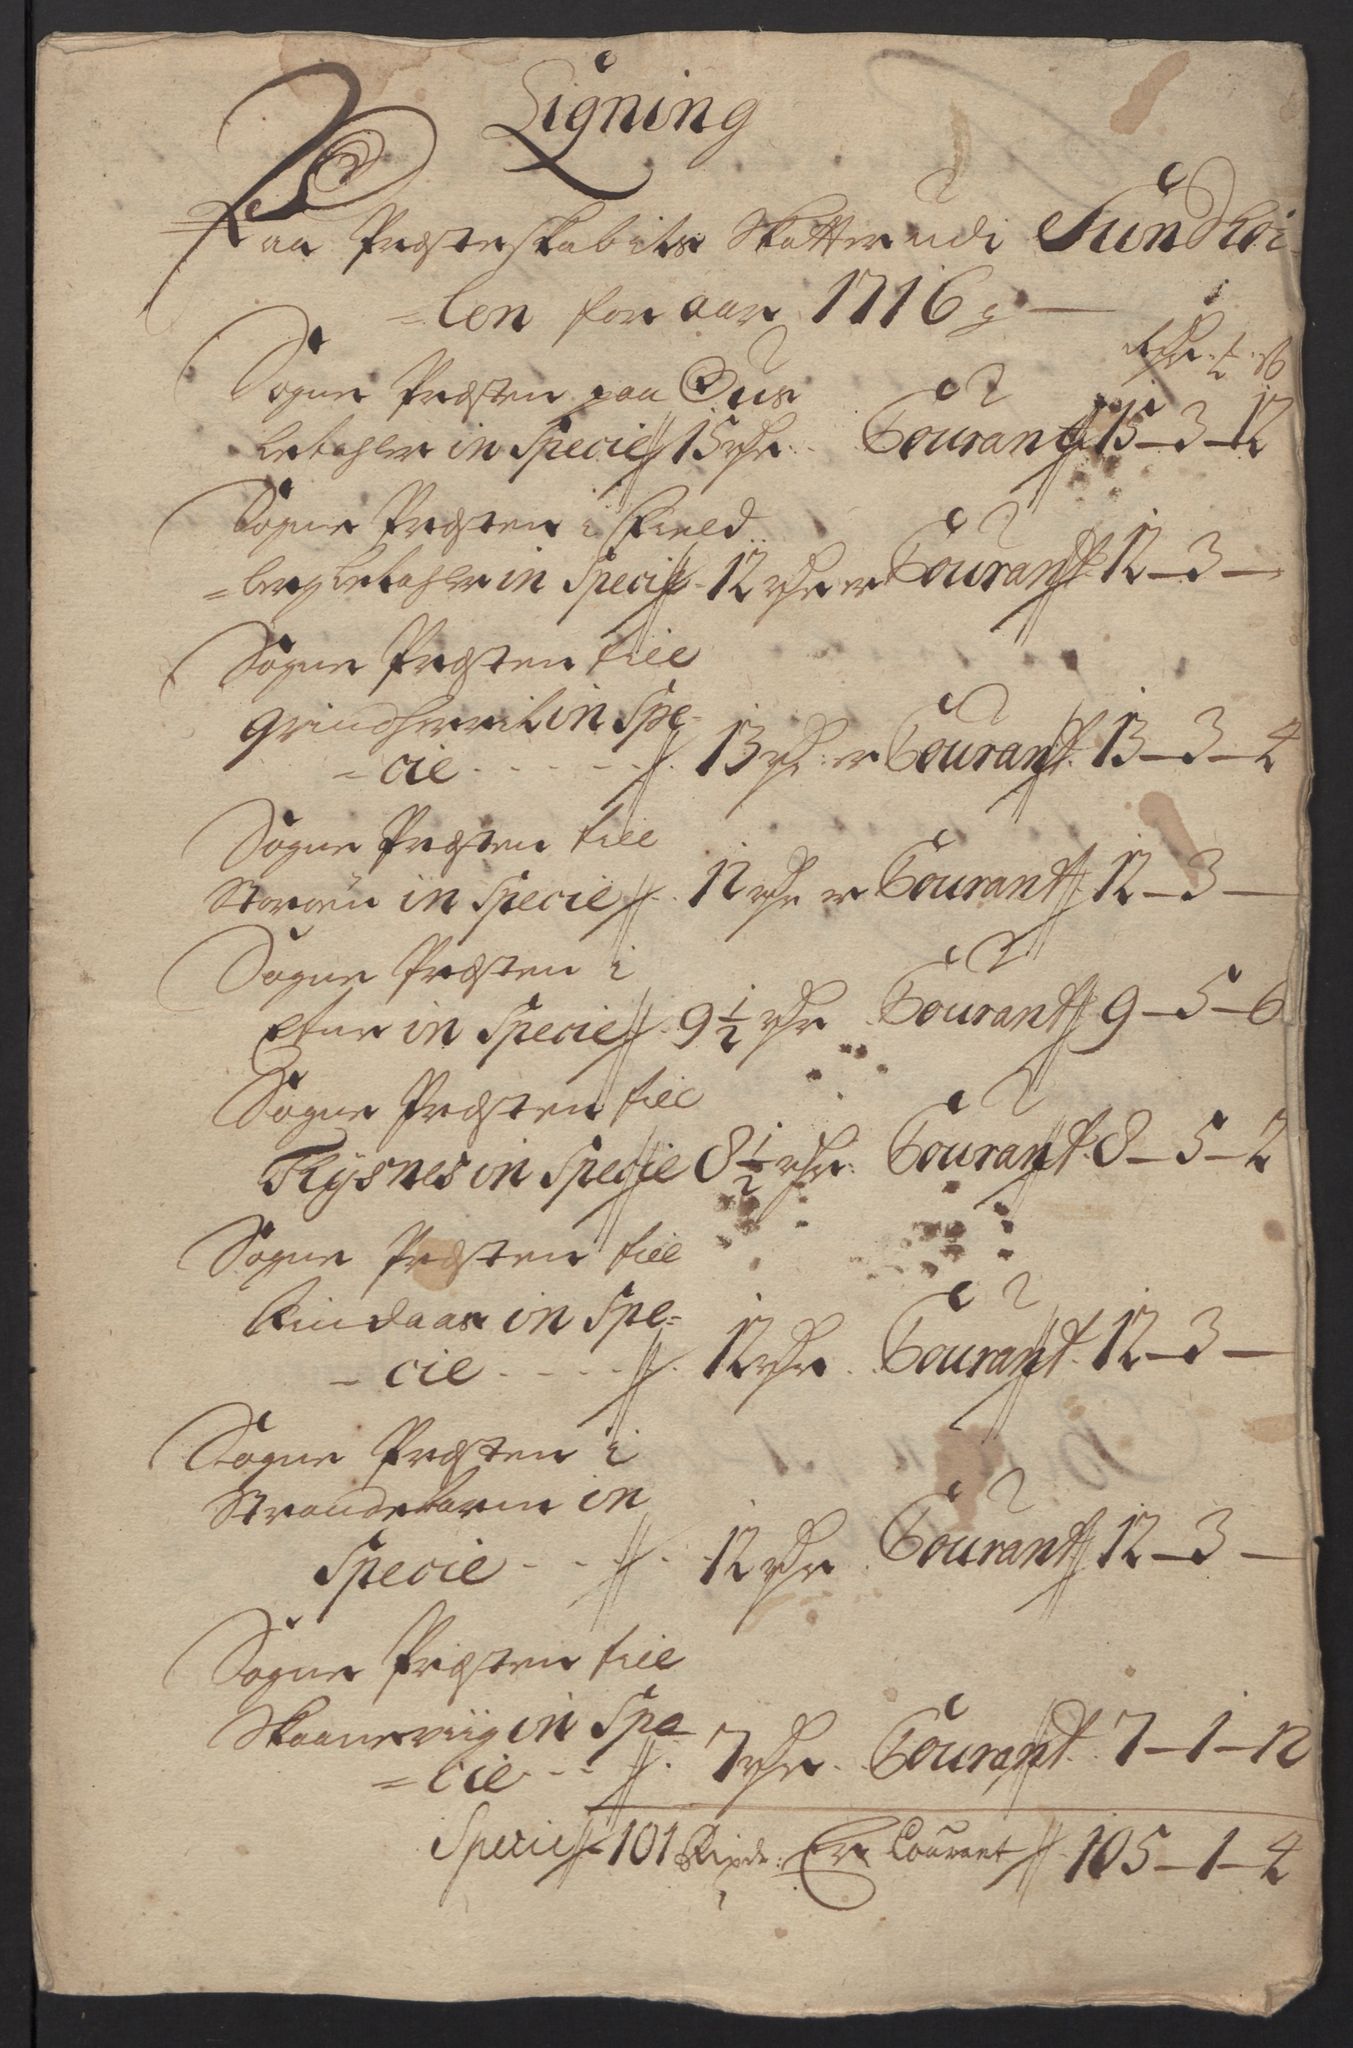 Ligning
Paa Præsteskabets Skatter udi Sundhoi
=len for aar 1716
Rdr ₰ ß
Sogne Præsten paa Ous
betahler in Specie 15 rdr Courant 15-3-12
Sogne Præsten i Field
=berg betahler in Specie 12 rdr er Courant 12-3-
Sogne Præsten till
Qvindherrit in Spe=
=cie 13 rdr er Courant 13-3-4
Sogne Præsten till
Storøen in Specie 12 rdr er Courant 12-3-
Sogne Præsten i
Etne in Specie 9½ rdr Courant 9-5-6
Sogne Præsten till
Tÿsnes in Specie 8½ rdr Courant 8-5-2
Sogne Præsten till
Findaas in Spe=
=cie 12 rdr Courant 12-3-
Sogne Præsten i
Strandebarm in
Specie 12 rdr Courant 12-3-
Sogne Præsten till
Skaaneviig in Spe
=cie 7 rdr Courant 7-1-12
Specie 101 Rixdr Er Courant 105-1-4